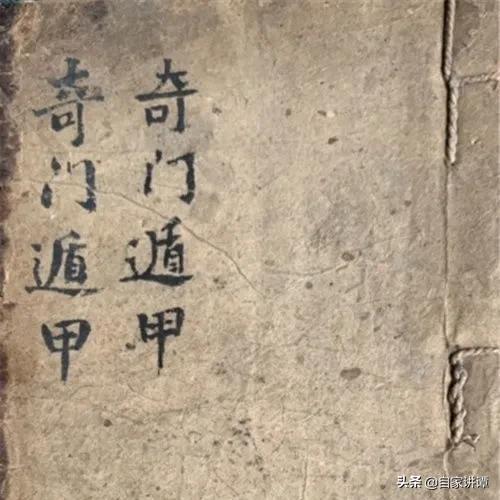 奇门遁甲
奇门遁甲
头条 @自家讲谭